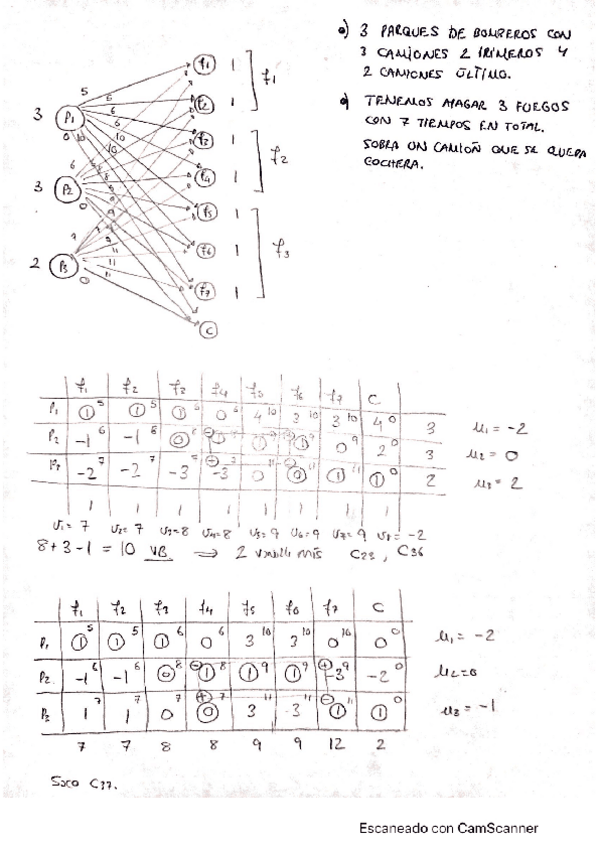 a) 3 PARQUES DE BOMBEROS CON
3 CAMIONES 2 PRIMEROS Y
2 CAMIONES ÚLTIMO.
TENEMOS APAGAR 3 FUEGOS
CON 7 TIEMPOS EN TOTAL.
SOBRA UN CAMIÓN QUE SE QUEDA
COCHERA.
3 P1
3 P2
2 P3
f1 1
f2 1
f3 1
f4 1
f5 1
f6 1
f7 1
C
f1
f2
f3
f1 f2 f3 f4 f5 f6 f7 C
P1 1 5 1 5 1 6 0 6 4 10 3 10 3 10 4 0 3 u1 = -2
P2 -1 6 -1 6 0 8 1 9 1 9 0 9 2 0 3 u2 = 0
P3 -2 7 -2 7 -3 7 -3 7 0 11 0 11 1 11 1 0 2 u3 = 2
1 1 1 1 1 1 1 1
v1 = 7 v2 = 7 v3 = 8 v4 = 8 v5 = 9 v6 = 9 v7 = 9 v8 = -2
8+3-1 = 10 VB → 2 C23, C36
f1 f2 f3 f4 f5 f6 f7 C
P1 1 5 1 5 1 6 0 6 3 10 3 10 0 10 0 0 u1 = -2
P2 -1 6 -1 6 0 8 1 8 1 9 1 9 -3 9 -2 0 u2 = 0
P3 1 7 1 7 0 7 0 7 3 11 -3 11 1 11 1 0 u3 = -1
7 7 8 8 9 9 12 2
Saco C37.
Escaneado con CamScanner